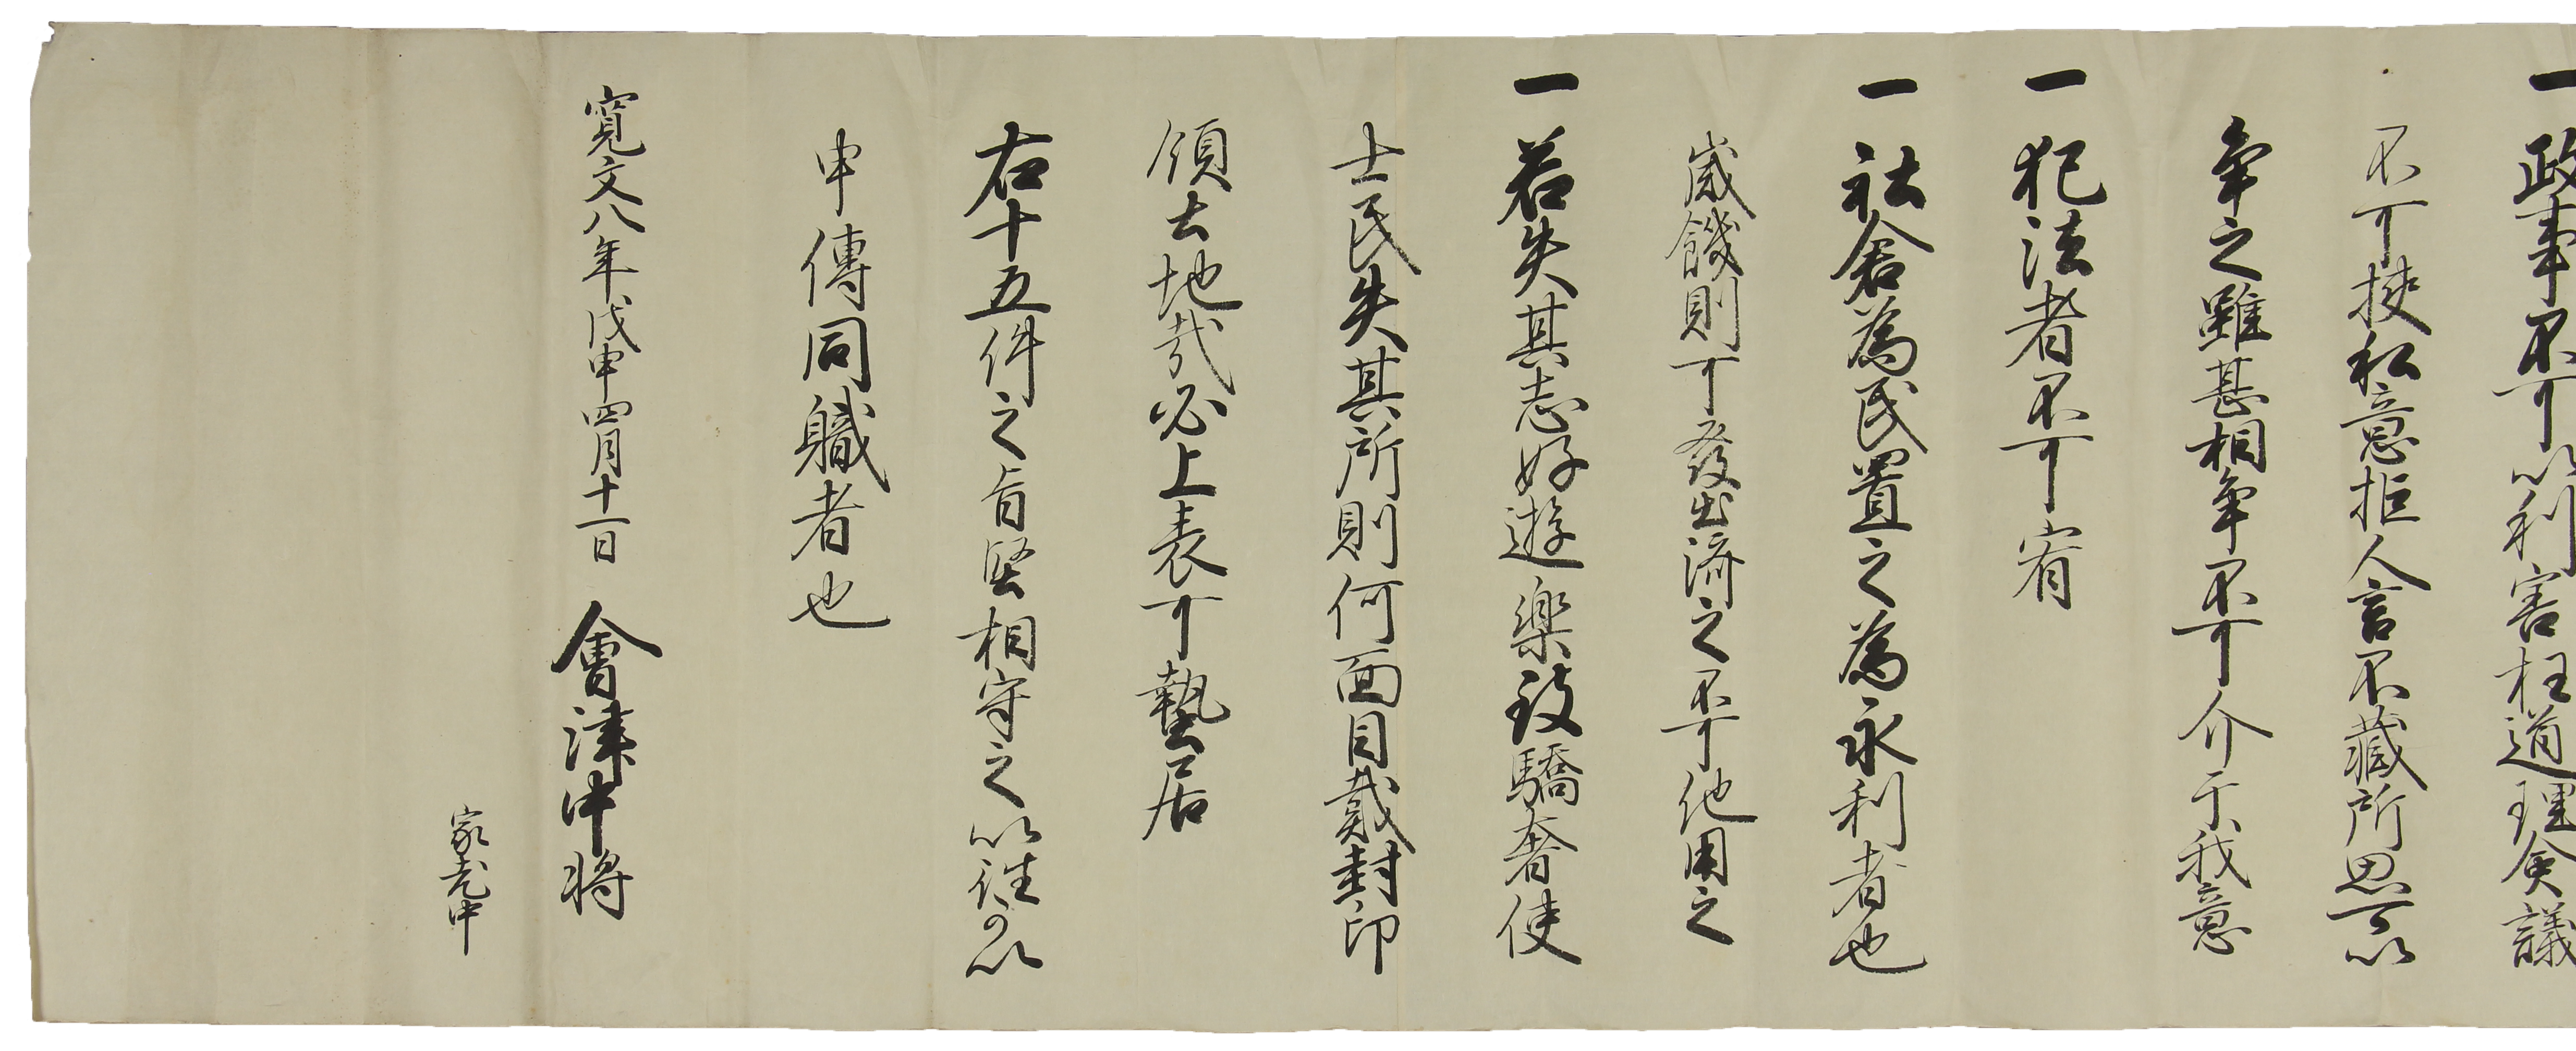 一政事不可以利害枉道理僉議
不可挾私意拒人言不藏所思可以
争之雖甚相争不可介于我意
一犯法者不可宥
一社倉為民置之為永利者也
歳饑則可發出濟之不可他用之
一若失其志好遊樂致驕奢使
士民失其所則何面目戴封印
領土地哉必上表可蟄居
右十五件之旨堅相守之以徃可以
申傳同職者也
寛文八年戊申四月十一日 會津中将
家老中